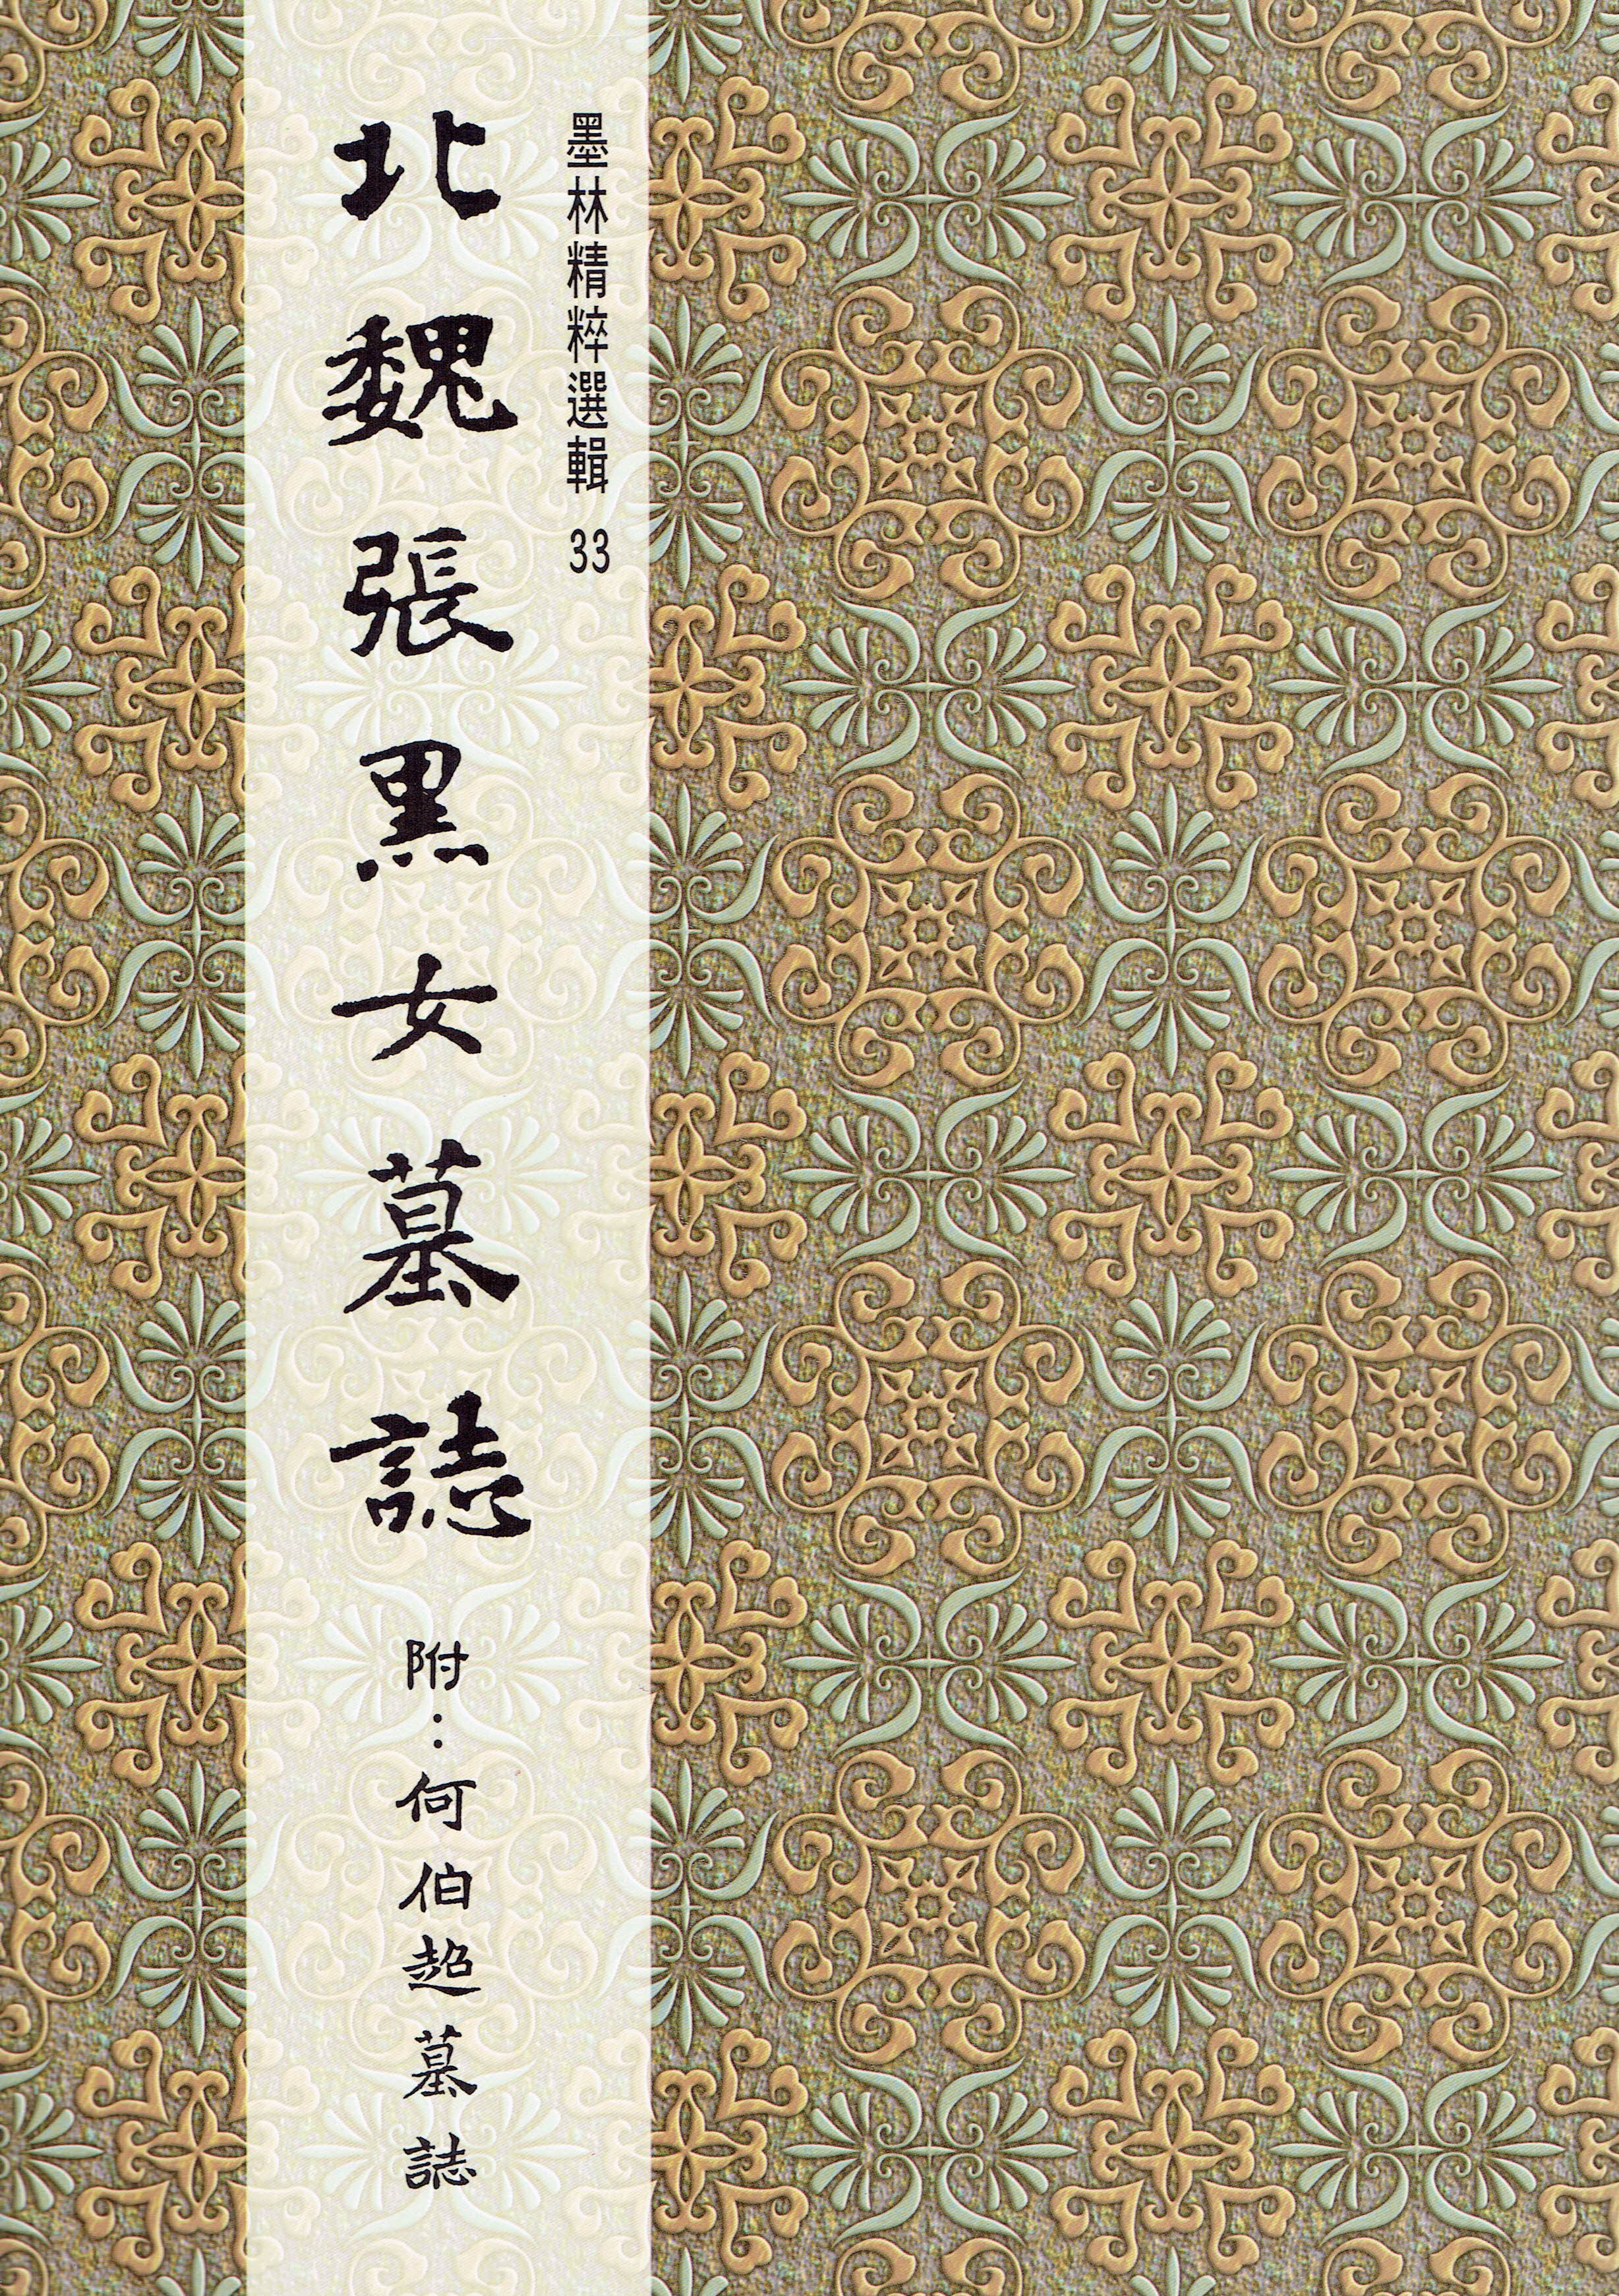 墨林精粹選輯 33
北魏張黑女墓誌
附：何伯超墓誌